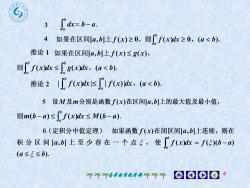 3 ∫_a^b dx = b − a.
4 如果在区间[a,b]上 f(x) ≥ 0，则 ∫_a^b f(x)dx ≥ 0，(a < b).
推论 1 如果在区间[a,b]上 f(x) ≤ g(x)，
则 ∫_a^b f(x)dx ≤ ∫_a^b g(x)dx，(a < b).
推论 2 |∫_a^b f(x)dx| ≤ ∫_a^b |f(x)|dx，(a < b).
5 设 M 及 m 分别是函数 f(x) 在区间[a,b]上的最大值及最小值，
则 m(b − a) ≤ ∫_a^b f(x)dx ≤ M(b − a).
6（定积分中值定理） 如果函数 f(x) 在闭区间[a,b]上连续，则在
积 分 区 间 [a,b] 上 至 少 存 在 一 个 点 ξ ， 使 ∫_a^b f(x)dx = f(ξ)(b − a)
(a ≤ ξ ≤ b).
4